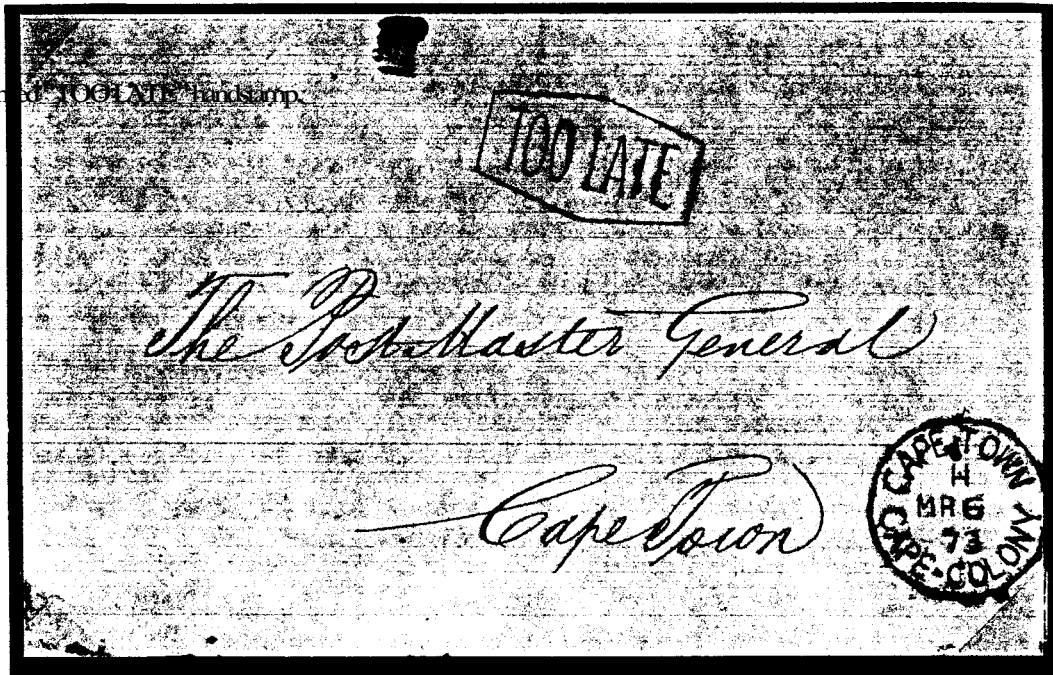 "TOO LATE" handstamp.
TOO LATE
The Post Master General
Cape Town
CAPE TOWN
H
MR 6
73
CAPE-COLONY